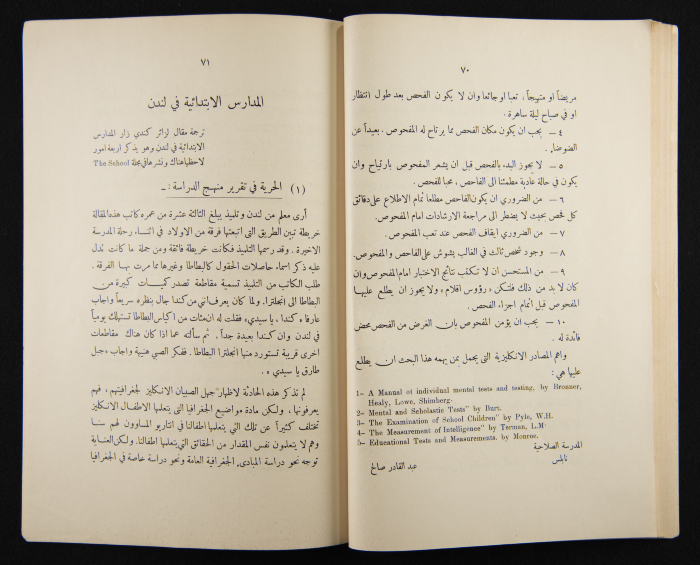 ٧٠
مريضاً او متهيجاً، تعبا او جائعا وان لا يكون الفحص بعد طول انتظار
او في صباح ليلة ساهرة.
٤ — يجب ان يكون مكان الفحص مما يرتاح له المفحوص. بعيداً عن
الضوضاء.
٥ — لا يجوز البدء بالفحص قبل ان يشعر المفحوص بارتياح وان
يكون في حالة عادية مطمئنا الى الفاحص، محبا للفحص.
٦ — من الضروري ان يكون الفاحص مطلعا تمام الاطلاع على دقائق
كل فحص بحيث لا يضطر الى مراجعة الارشادات امام المفحوص.
٧ — من الضروري ايقاف الفحص عند تعب المفحوص.
٨ — وجود شخص ثالث في الغالب يشوش على الفاحص والمفحوص.
٩ — من المستحسن ان لا تكتب نتائج الاختبار امام المفحوص وان
كان لا بد من ذلك فلتكن «رؤوس اقلام» ولا يجوز ان يطلع عليها
المفحوص قبل اتمام اجراء الفحص.
١٠ — يجب ان يؤمن المفحوص بان الغرض من الفحص محض
فائدة له.
واهم المصادر الانكليزية التي يجمل بمن يهمه هذا البحث ان يطلع
عليها هي:
1- A Manual of individual mental tests and testing, by Bronner,
Healy, Lowe, Shimberg.
2- Mental and Scholastic Tests" by Burt.
3- The Examination of School Children" by Pyle, W.H.
4- The Measurement of Intelligence" by Terman, L.M
5- Educational Tests and Measurements, by Monroe.
المدرسة الصلاحية
نابلس
عبد القادر صالح
٧١
المدارس الابتدائية في لندن
ترجمة مقال لزائر كندي زار المدارس
الابتدائية في لندن وهو يذكر اربعة امور
لاحظها هناك ونشرها في مجلة The School
(١) الحرية في تقرير منهج الدراسة: ــ
أرى معلم من لندن وتلميذ يبلغ الثالثة عشرة من عمره كاتب هذه المقالة
خريطة تبين الطريق التي اتبعتها فرقة من الاولاد في اثناء رحلة المدرسة
الاخيرة. وقد رسمها التلميذ فكانت خريطة فائقة ومن جملة ما كانت تدل
عليه ذكر اسماء حاصلات الحقول كالبطاطا وغيرها مما مرت بها الفرقة.
طلب الكاتب من التلميذ تسمية مقاطعة تصدر كميات كبيرة من
البطاطا الى انجلترا. ولما كان يعرف اني من كندا جال بنظره سريعاً واجاب
عارفاً «كندا، يا سيدي» فقلت له ان مئات من اكياس البطاطا تستهلك يومياً
في لندن وان كندا بعيدة جداً. ثم سألته عما اذا كان هناك مقاطعات
اخرى قريبة تستورد منها انجلترا البطاطا. ففكر الصبي هنيهة واجاب «جبل
طارق يا سيدي».
لم تذكر هذه الحادثة لاظهار جهل الصبيان الانكليز لجغرافيتهم، فهم
يعرفونها، ولكن مادة مواضيع الجغرافيا التي يتعلمها الاطفال الانكليز
تختلف كثيراً عن تلك التي يتعلمها اطفالنا في انتاريو المساوون لهم سنا
وهم لا يتعلمون نفس المقدار من الحقائق التي يتعلمها اطفالنا. ولكن العناية
توجه نحو دراسة المبادىء الجغرافية العامة ونحو دراسة خاصة في الجغرافيا